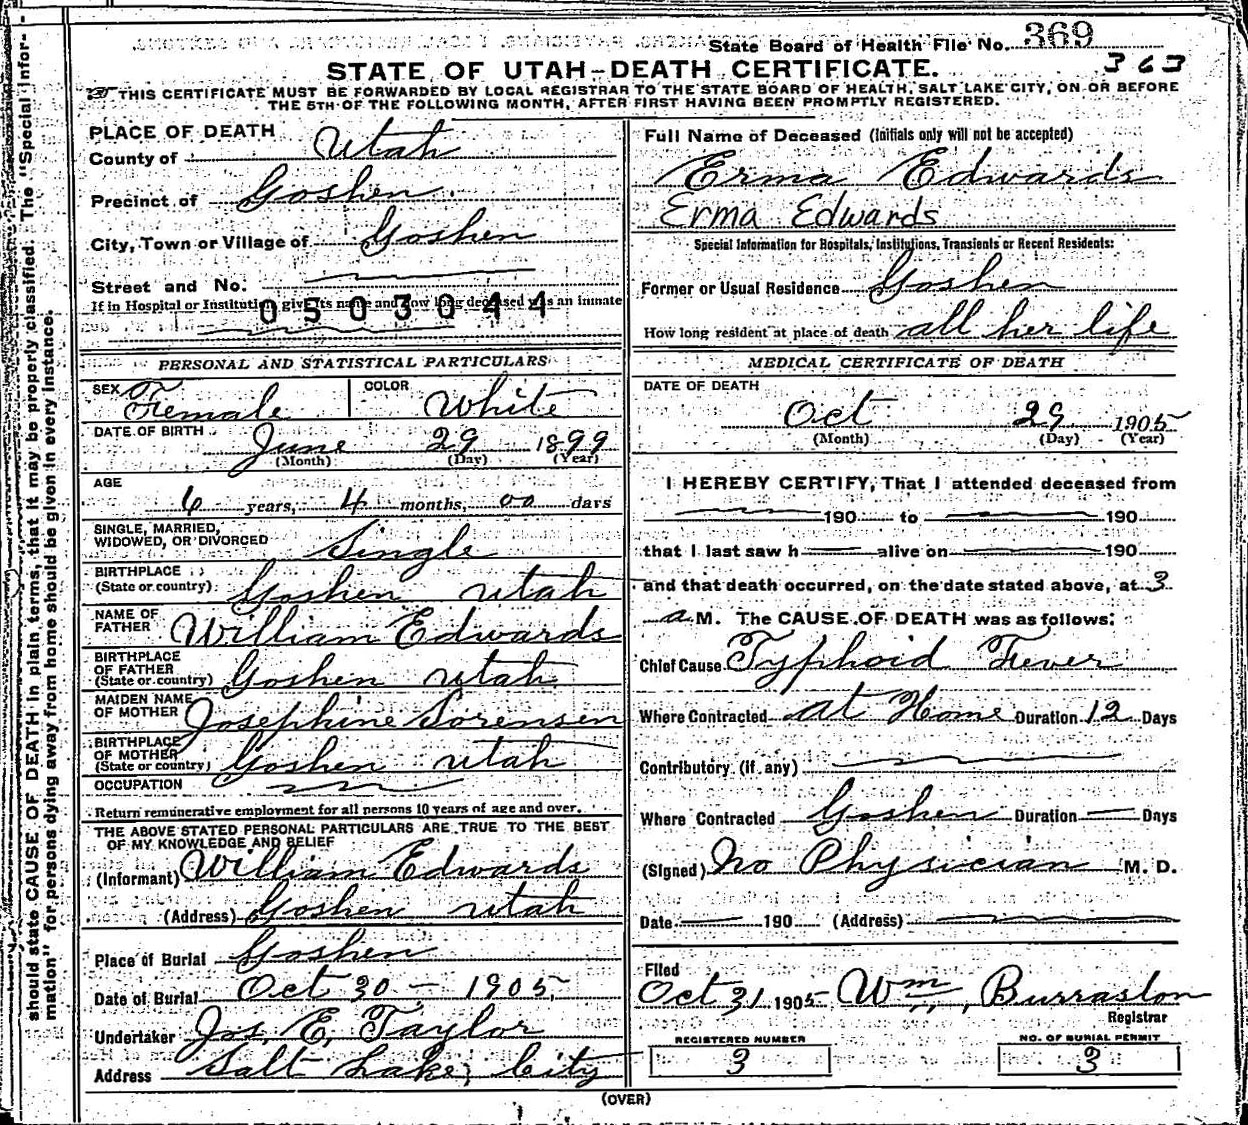 State Board of Health File No. 369
363
STATE OF UTAH-DEATH CERTIFICATE.
THIS CERTIFICATE MUST BE FORWARDED BY LOCAL REGISTRAR TO THE STATE BOARD OF HEALTH, SALT LAKE CITY, ON OR BEFORE
THE 5TH OF THE FOLLOWING MONTH, AFTER FIRST HAVING BEEN PROMPTLY REGISTERED.
should state CAUSE OF DEATH in plain terms, that it may be properly classified. The "Special Infor-
mation" for persons dying away from home should be given in every instance.
PLACE OF DEATH
County of Utah
Precinct of Goshen.
City, Town or Village of Goshen
Street and No.
If in Hospital or Institution give its name and how long deceased was an inmate
0503044
PERSONAL AND STATISTICAL PARTICULARS
SEX Female COLOR White
DATE OF BIRTH June 29 1899
(Month) (Day) (Year)
AGE
6 years, 4 months, 00 days
SINGLE, MARRIED,
WIDOWED, OR DIVORCED Single
BIRTHPLACE
(State or country) Goshen Utah
NAME OF
FATHER William Edwards
BIRTHPLACE
OF FATHER
(State or country) Goshen Utah
MAIDEN NAME
OF MOTHER Josephine Sorensen
BIRTHPLACE
OF MOTHER
(State or country) Goshen Utah
OCCUPATION
Return remunerative employment for all persons 10 years of age and over.
THE ABOVE STATED PERSONAL PARTICULARS ARE TRUE TO THE BEST
OF MY KNOWLEDGE AND BELIEF
(Informant) William Edwards
(Address) Goshen Utah
Place of Burial Goshen
Date of Burial Oct 30 - 1905
Undertaker Jos. E. Taylor
Address Salt Lake City
Full Name of Deceased (Initials only will not be accepted)
Erma Edwards
Erma Edwards
Special Information for Hospitals, Institutions, Transients or Recent Residents:
Former or Usual Residence Goshen
How long resident at place of death all her life
MEDICAL CERTIFICATE OF DEATH
DATE OF DEATH
Oct 29 1905
(Month) (Day) (Year)
I HEREBY CERTIFY, That I attended deceased from
190 to 190
that I last saw h alive on 190
and that death occurred, on the date stated above, at 3
a M. The CAUSE OF DEATH was as follows:
Chief Cause Typhoid Fever
Where Contracted at Home Duration 12 Days
Contributory (if any)
Where Contracted Goshen Duration Days
(Signed) No Physician M. D.
Date 190 (Address)
Filed
Oct 31 1905 Wm, Burraston
Registrar
REGISTERED NUMBER
3
NO. OF BURIAL PERMIT
3
(OVER)